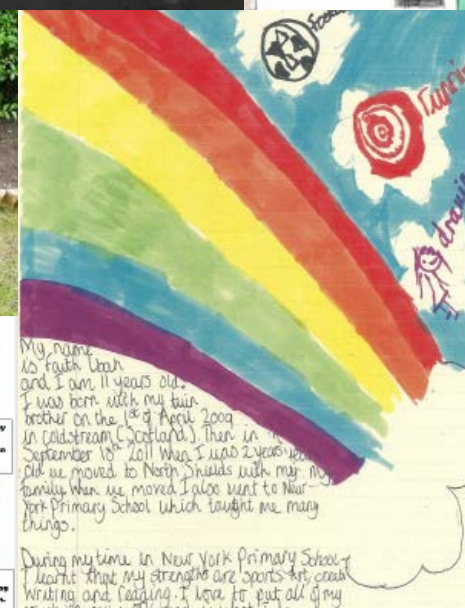 My name
is Faith Ubah
and I am 11 years old.
I was born with my twin
brother on the 1st of April 2009
in coldstream (Scotland). Then in
September 18th 2011 When I was 2 years
old we moved to North Shields with my
family. When we moved I also went to New
York Primary School which taught me many
things.
During my time in New York Primary School
I learnt that my strengths are sports Art,
Writing and reading. I love to put all of my